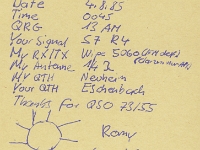 Date 4.8.85
Time 0045
QRG 13 AM
Your Signal S7 R4
My RX/TX Wipe 5060
My Antenne
My QTH Neuheim
Your QTH Eschenbach
Thanks for QSO 73/55
Romy